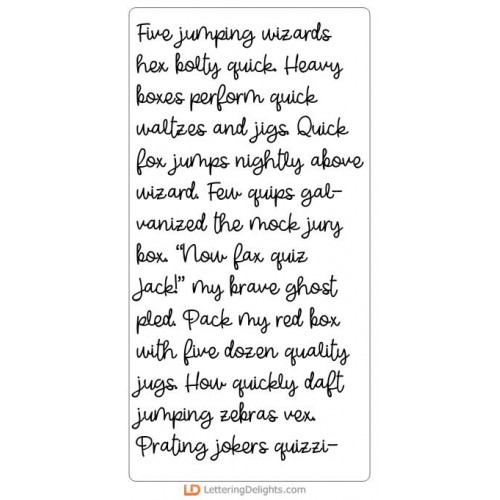 Five jumping wizards
hex bolty quick. Heavy
boxes perform quick
waltzes and jigs. Quick
fox jumps nightly above
wizard. Few quips gal-
vanized the mock jury
box. “Now fax quiz
Jack!” my brave ghost
pled. Pack my red box
with five dozen quality
jugs. How quickly daft
jumping zebras vex.
Prating jokers quizzi-
LD LetteringDelights.com